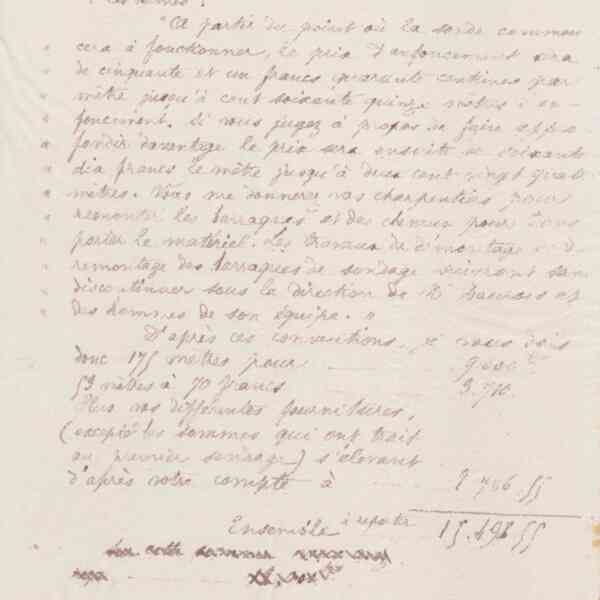 "A partir du point où la sonde commen
" cera à fonctionner, le prix d'enfoncement sera
" de cinquante et un francs quarante centimes par
" mètre jusqu'à cent soixante quinze mètres d'en-
" foncement. Si vous jugez à propos de faire appro-
" fondir davantage le prix sera ensuite de soixante
" dix francs le mètre jusqu'à deux cent vingt quatre
" mètres. Vous me donnerez vos charpentiers pour
" remonter les barraques et des chevaux pour trans
" porter le matériel. Les travaux de démontage et de
" remontage des barraques de sondage suivront sans
" discontinuer sous la direction de Mr et
" des hommes de son équipe. "
D'après ces conventions, je vous dois
donc 175 mètres pour
53 mètres à 70 francs 3.710.
Plus vos différentes fournitures,
(excepté les sommes qui ont trait
au premier sondage) s'élevant
d'après votre compte à
Ensemble à reporter
sur cette somme